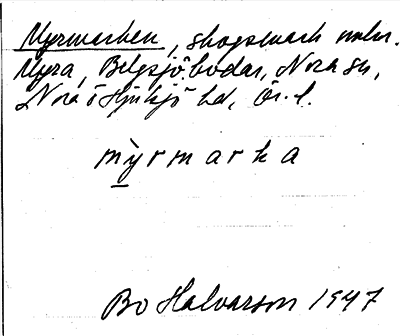 Myrmarken, skogsmark m.m.
Myra, Bergsjöbodar, Nora sn,
Nora o Hjulsjö hd, Ör. l.
mỳrmarka
Bo Halvarson 1947